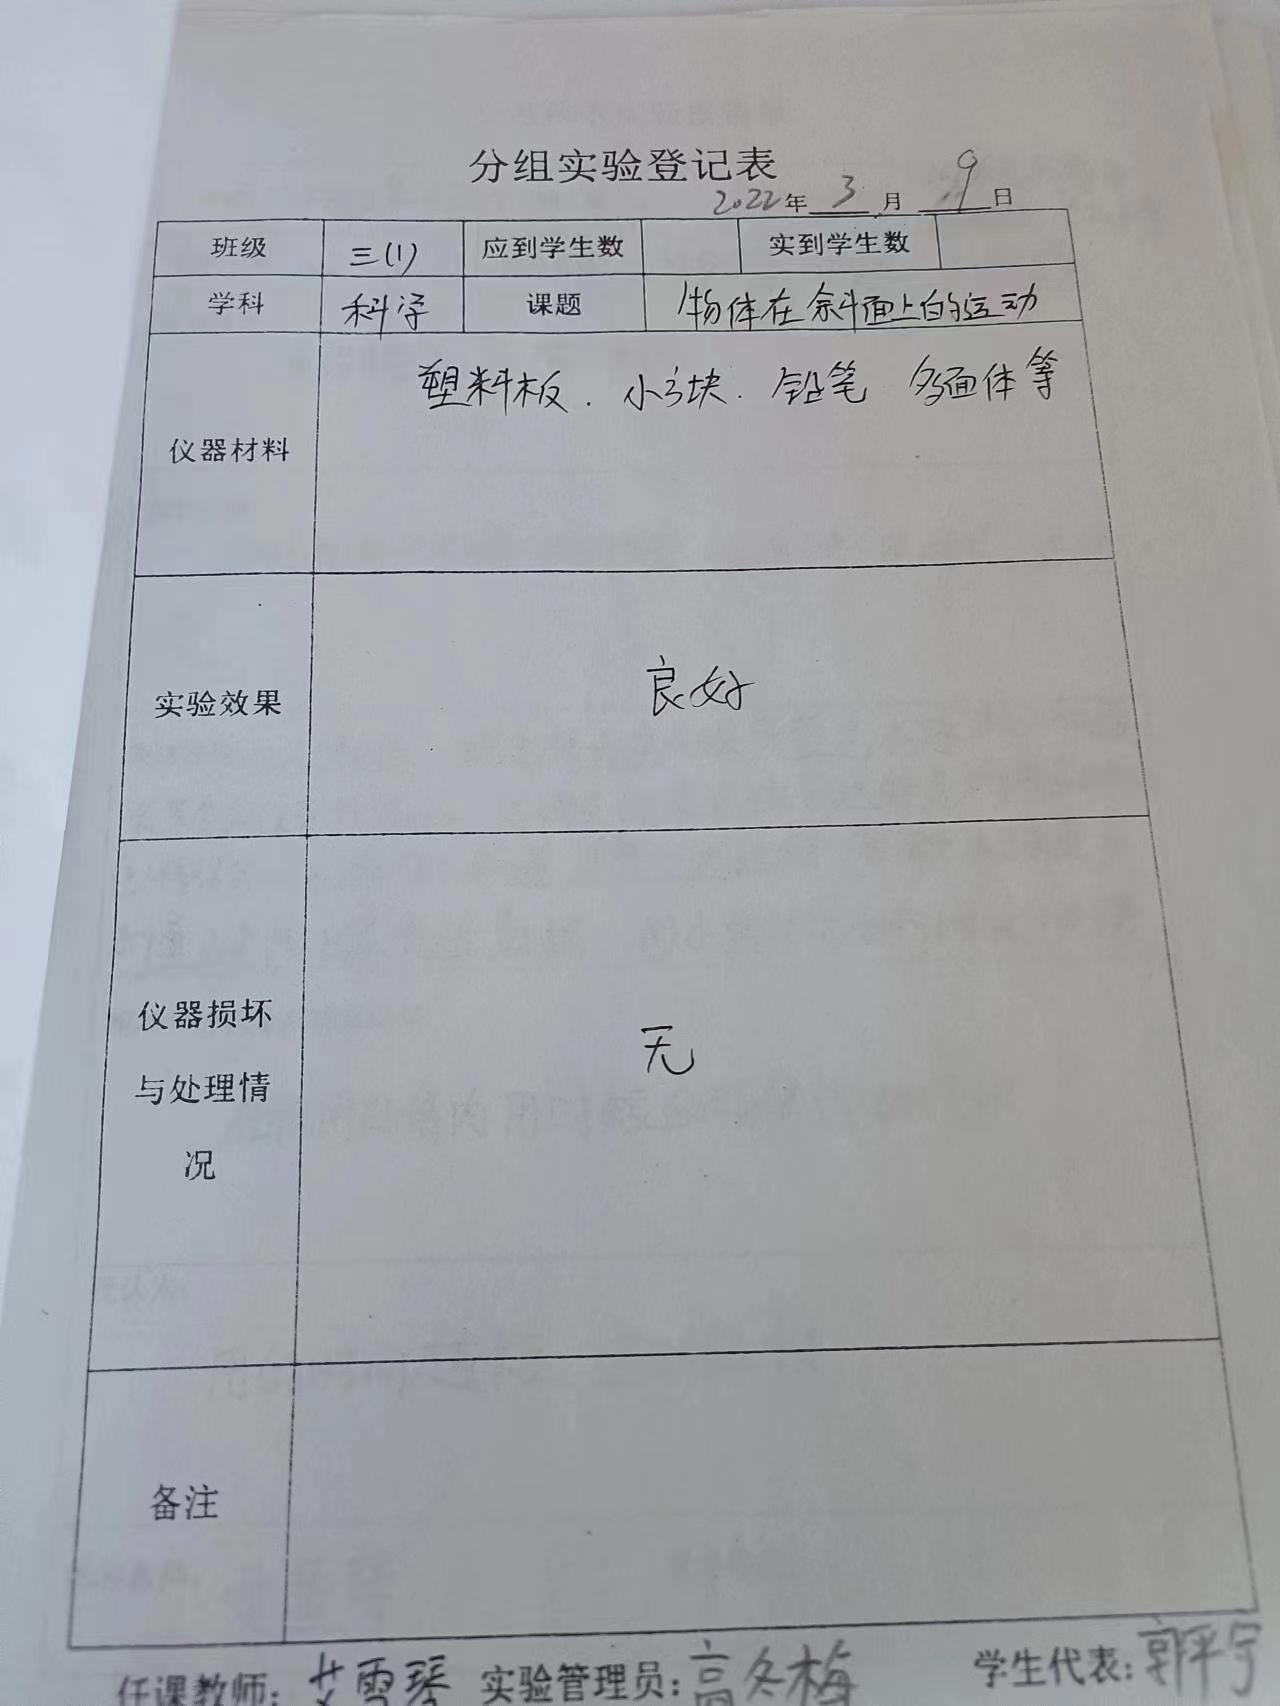 分组实验登记表
2022年 3 月 9 日
班级 三(1) 应到学生数 实到学生数
学科 科学 课题 物体在斜面上的运动
仪器材料 塑料板. 小方块. 铅笔 多面体等
实验效果 良好
仪器损坏
与处理情
况
无
备注
任课教师: 艾雪琴 实验管理员: 高冬梅 学生代表: 郭平宇